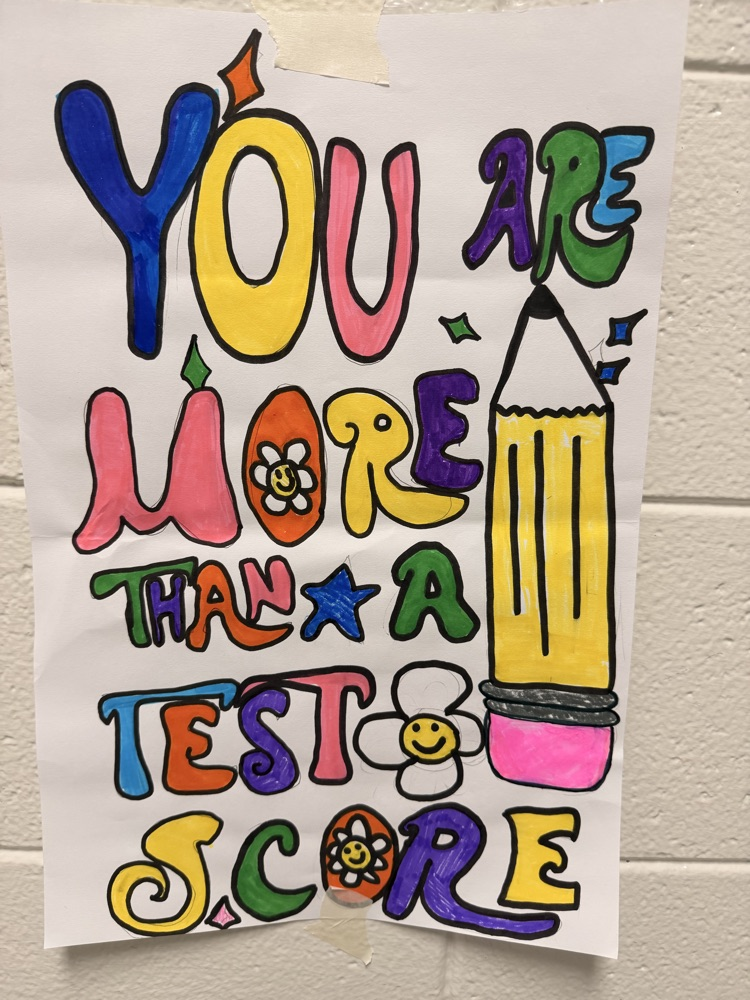 YOU ARE
MORE
THAN A
TEST
SCORE